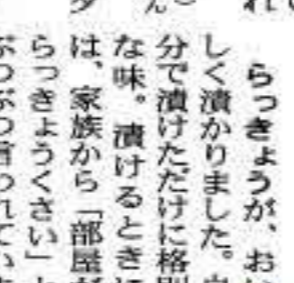 らっきょうが、おい
しく漬かりました。自
分で漬けただけに格別
な味。漬けるときに
は、家族から「部屋が
らっきょうくさい」と
ぶつぶつ言われていま